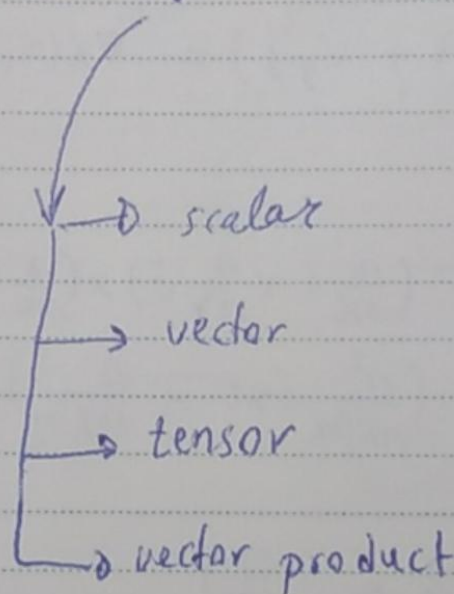 scalar
vector
tensor
vector product